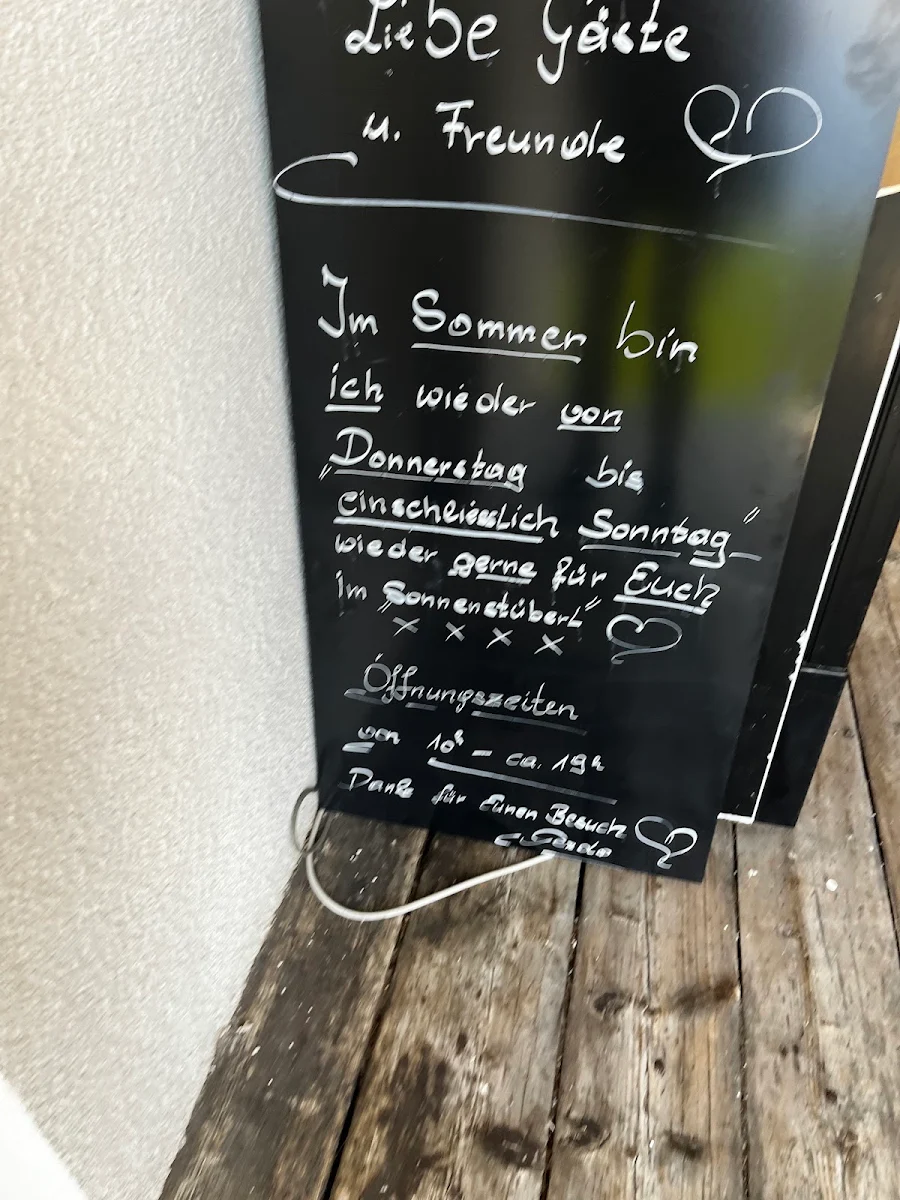 Liebe Gäste
u. Freunde
Im Sommer bin
ich wieder von
"Donnerstag bis
einschliesslich Sonntag"
wieder gerne für Euch
im "Sonnenstüberl"
x x x x
Öffnungszeiten
von 10h - ca. 19h
Danke für Euren Besuch